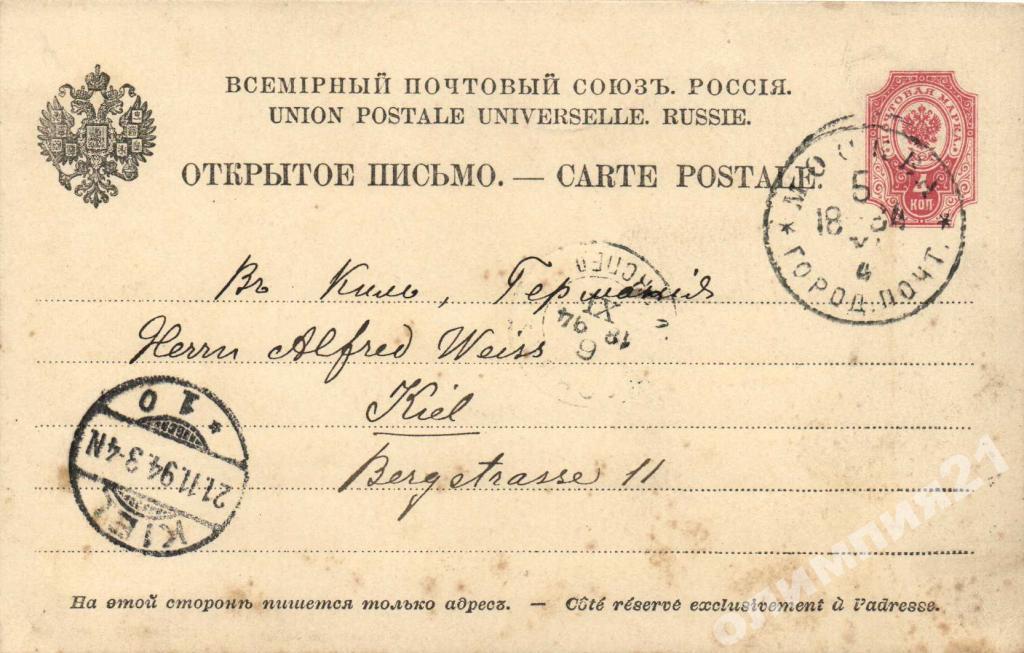 ВСЕМІРНЫЙ ПОЧТОВЫЙ СОЮЗЪ. РОССІЯ.
UNION POSTALE UNIVERSELLE. RUSSIE.
ОТКРЫТОЕ ПИСЬМО. — CARTE POSTALE.
ПОЧТОВАЯ МАРКА
4
КОП
5
1894
XI
4
ГОРОД. ПОЧТ.
Въ Киль, Германія
6
XI
18 94
Herrn Alfred Weiss
Kiel
Bergstrasse 11
* 1 0
21.11.94.3-4N
KIEL
На этой сторонѣ пишется только адресъ. — Côté réservé exclusivement à l'adresse.
олимпия21